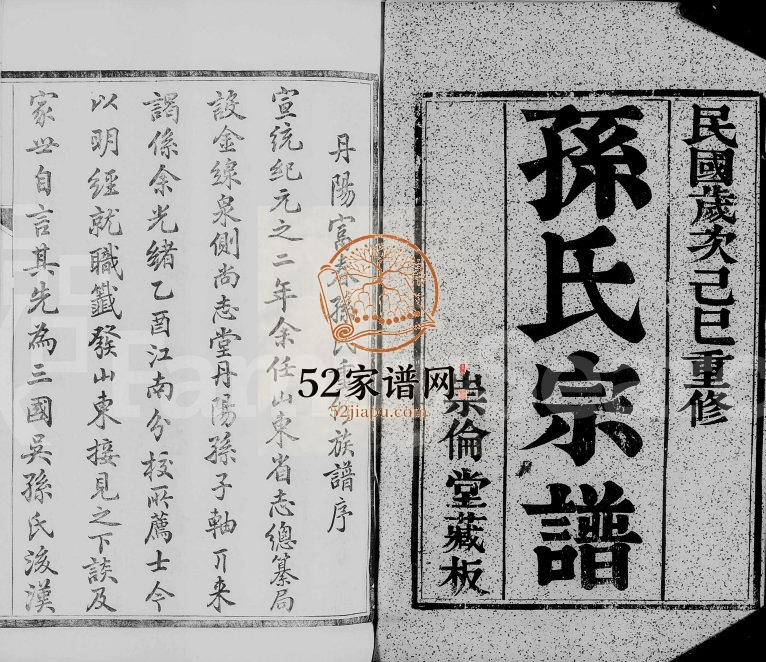 民國歲次己巳重修
孫氏宗譜
崇倫堂藏板
丹陽富春孫氏族譜序
宣統紀元之二年余任山東省志總纂局
設金線泉側尚志堂丹陽孫子軸丌来
謁係余光緒乙酉江南分校所薦士今
以明經就職籤發山東接見之下談及
家世自言其先為三國吳孫氏後漢
52家谱网
52jiapu.com